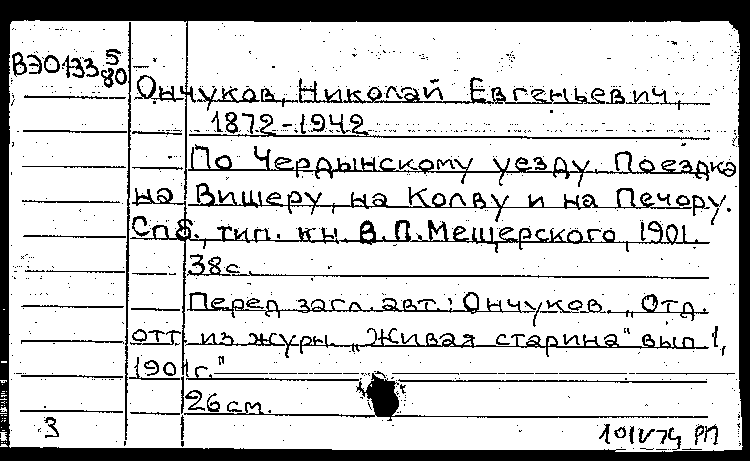 ВЭ0133 5/80
Ончуков, Николай Евгеньевич,
1872-1942
По Чердынскому уезду. Поездка
на Вишеру, на Колву и на Печору.
Спб., тип. кн. В.П.Мещерского, 1901.
38с.
Перед загл. авт.: Ончуков. „Отд.
отт. из журн. „Живая старина" вып 1,
1901г."
26см.
3 РП